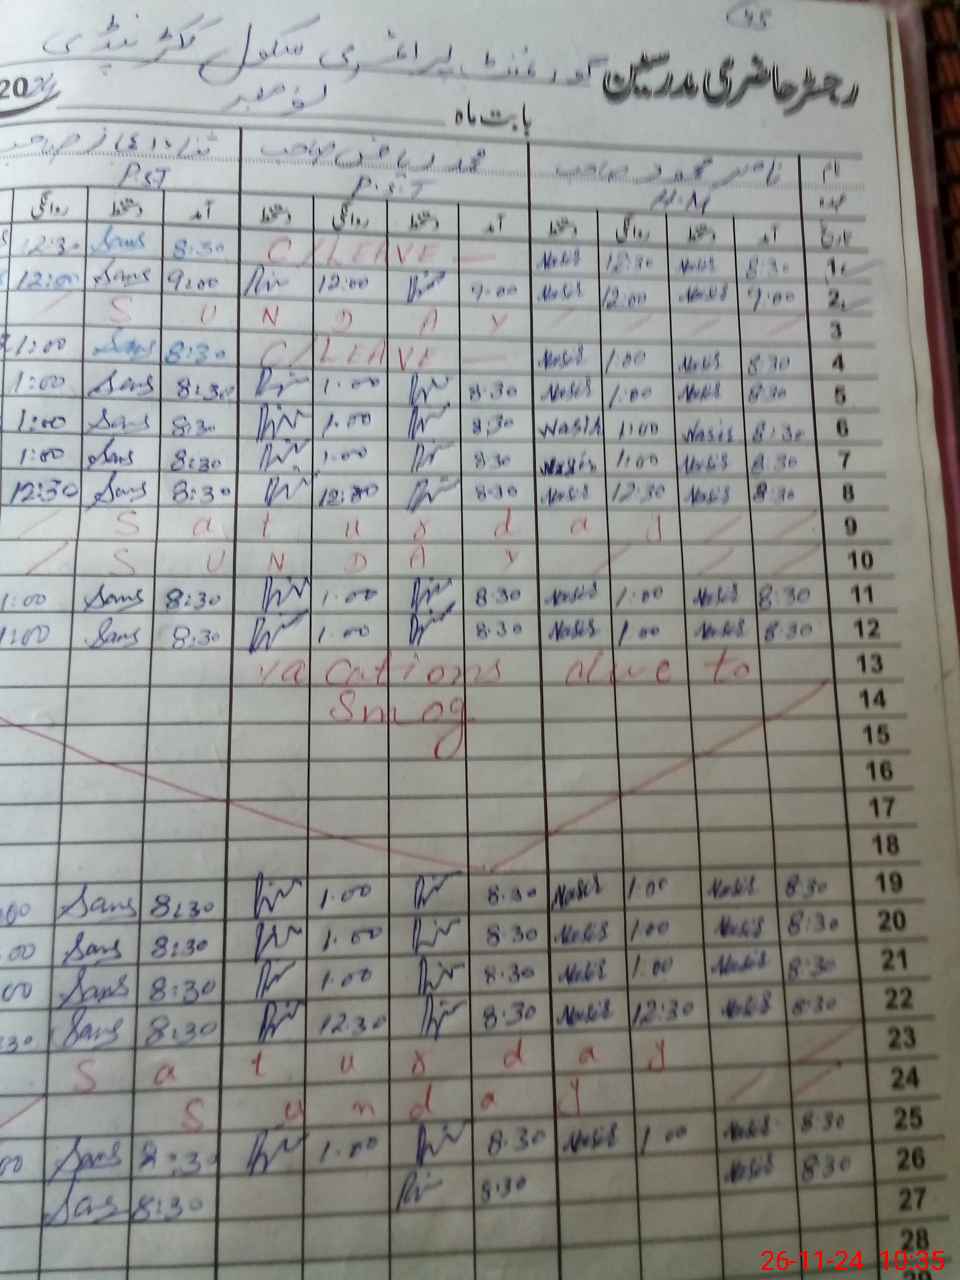 45
رجسٹر حاضری مدرسین گورنمنٹ پرائمری سکول
بابت ماہ نومبر 20
نام ناصر محمود صاحب محمد ریاض صاحب
عہدہ H.M P.S.T P.S.T
تاریخ آمد دستخط روانگی دستخط آمد دستخط روانگی دستخط آمد دستخط روانگی
1 8:30 Nasir 12:30 Nasir C/LEAVE 8:30 Sans 12:30
2 9:00 Nasir 12:00 Nasir 9:00 12:00 9:00 Sans 12:00
3 SUNDAY
4 8:30 Nasir 1:00 Nasir C/LEAVE 8:30 Sans 1:00
5 8:30 Nasir 1:00 Nasir 8:30 1:00 8:30 Sans 1:00
6 8:30 Nasir 1:00 Nasir 8:30 1:00 8:30 Sans 1:00
7 8:30 Nasir 1:00 Nasir 8:30 1:00 8:30 Sans 1:00
8 8:30 Nasir 12:30 Nasir 8:30 12:30 8:30 Sans 12:30
9 Saturday
10 SUNDAY
11 8:30 Nasir 1:00 Nasir 8:30 1:00 8:30 Sans 1:00
12 8:30 Nasir 1:00 Nasir 8:30 1:00 8:30 Sans 1:00
13 vacations due to
14 Smog
15
16
17
18
19 8:30 Nasir 1:00 Nasir 8:30 1:00 8:30 Sans :00
20 8:30 Nasir 1:00 Nasir 8:30 1:00 8:30 Sans :00
21 8:30 Nasir 1:00 Nasir 8:30 1:00 8:30 Sans 00
22 8:30 Nasir 12:30 Nasir 8:30 12:30 8:30 Sans :30
23 Saturday
24 Sunday
25 8:30 Nasir 1:00 Nasir 8:30 1:00 8:30 Sans 00
26 8:30 Nasir 8:30 8:30 Sans
27
28
26-11-24 10:35